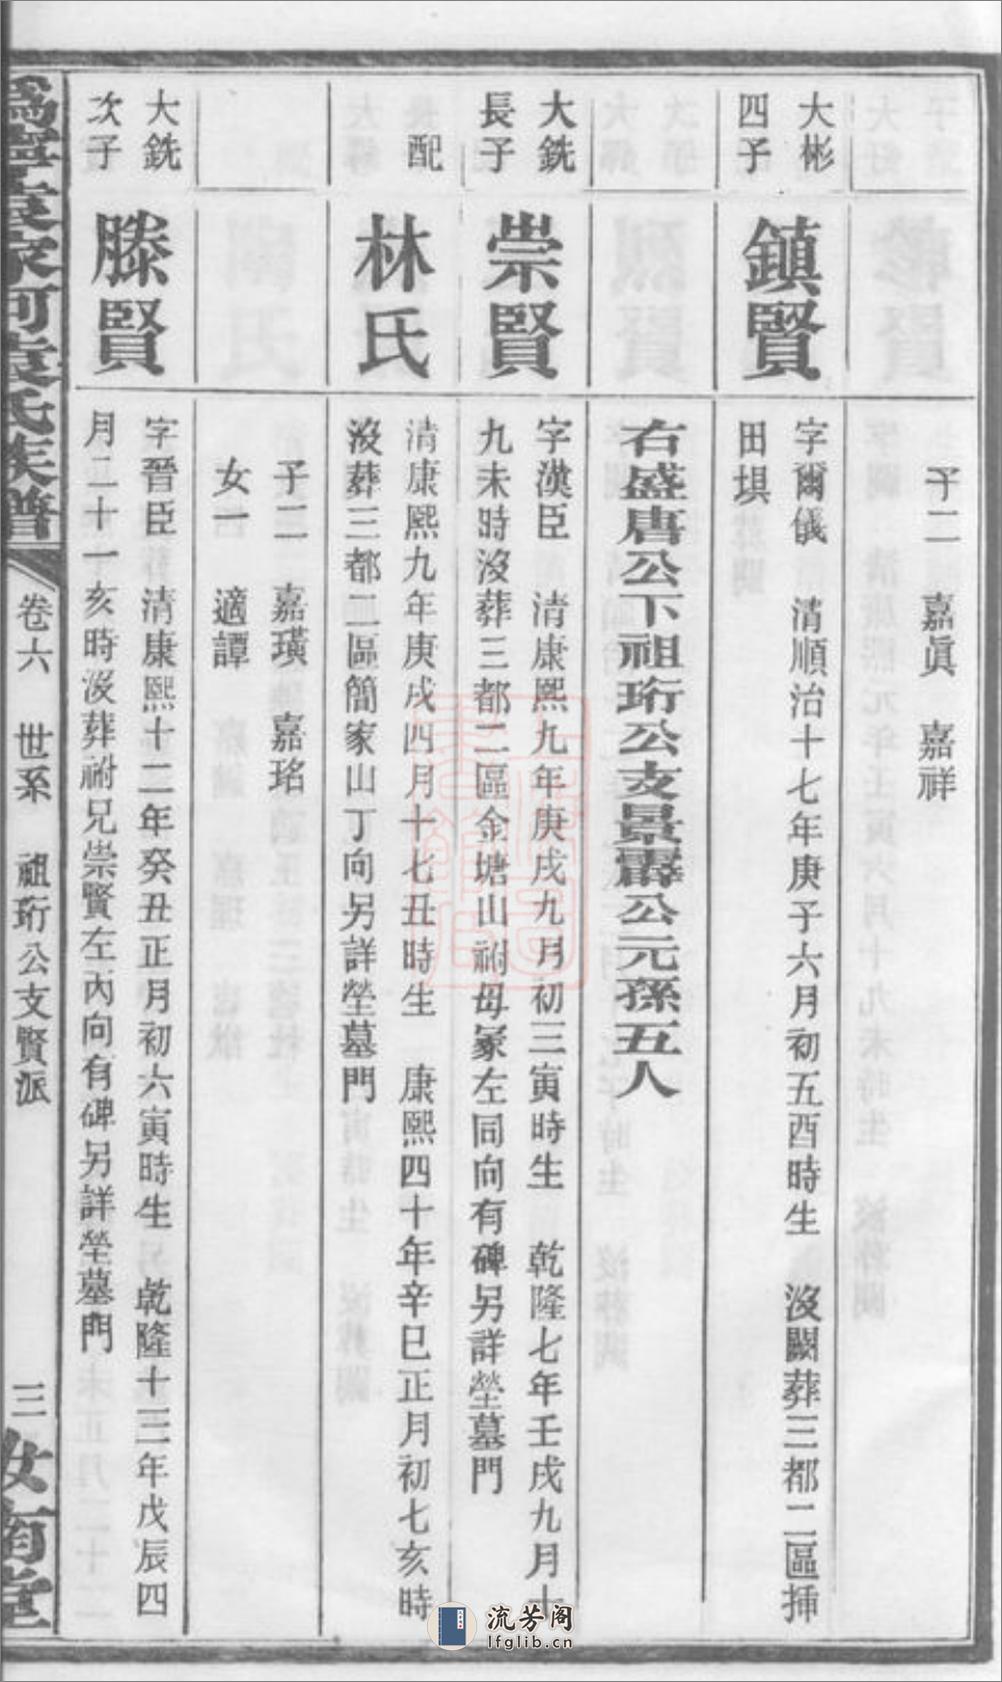 子二　嘉眞　嘉祥
大彬
四子
鎮賢
字爾儀　清順治十七年庚子六月初五酉時生　沒闕葬三都二區揷
田垻
右盛唐公下祖珩公支景霨公元孫五人
大銑
長子
崇賢
字漢臣　清康熙九年庚戌九月初三寅時生　乾隆七年壬戌九月十
九未時沒葬三都二區金塘山祔母冢左同向有碑另詳塋墓門
配
林氏
清康熙九年庚戌四月十七丑時生　康熙四十年辛巳正月初七亥時
沒葬三都二區簡家山丁向另詳塋墓門
子二　嘉璜　嘉珆
女一　適譚
大銑
次子
滕賢
字晉臣　清康熙十二年癸丑正月初六寅時生　乾隆十三年戊辰四
月二十一亥時沒葬祔兄崇賢左內向有碑另詳塋墓門
袁家河袁氏族譜
卷六　世系　祖珩公支賢派
三
汝南堂
流芳阁
lfglib.cn